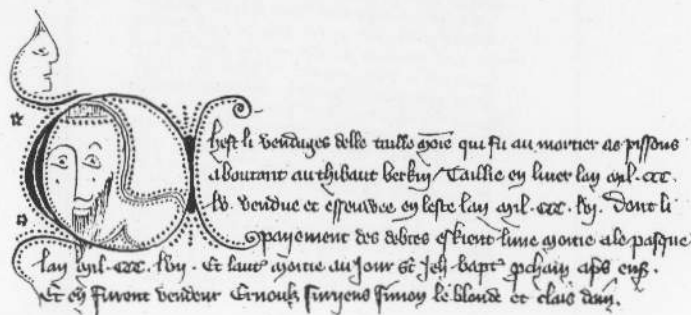 Chest li vendages delle taille moie qui fu au mortier as pissons
aboutant au thibaut berkin / Taillie en liver lan mil . ccc .
lv . vendue et esseuwee en leste lan mil . ccc . lvj . dont li
payement des debtes eskient lune moitie a le pasque
lan mil . ccc . lvij . Et laut moitie au jour st Jeh bapt pchain aps ens .
Et en furent vendeur Ernouls simon le blonde et clais